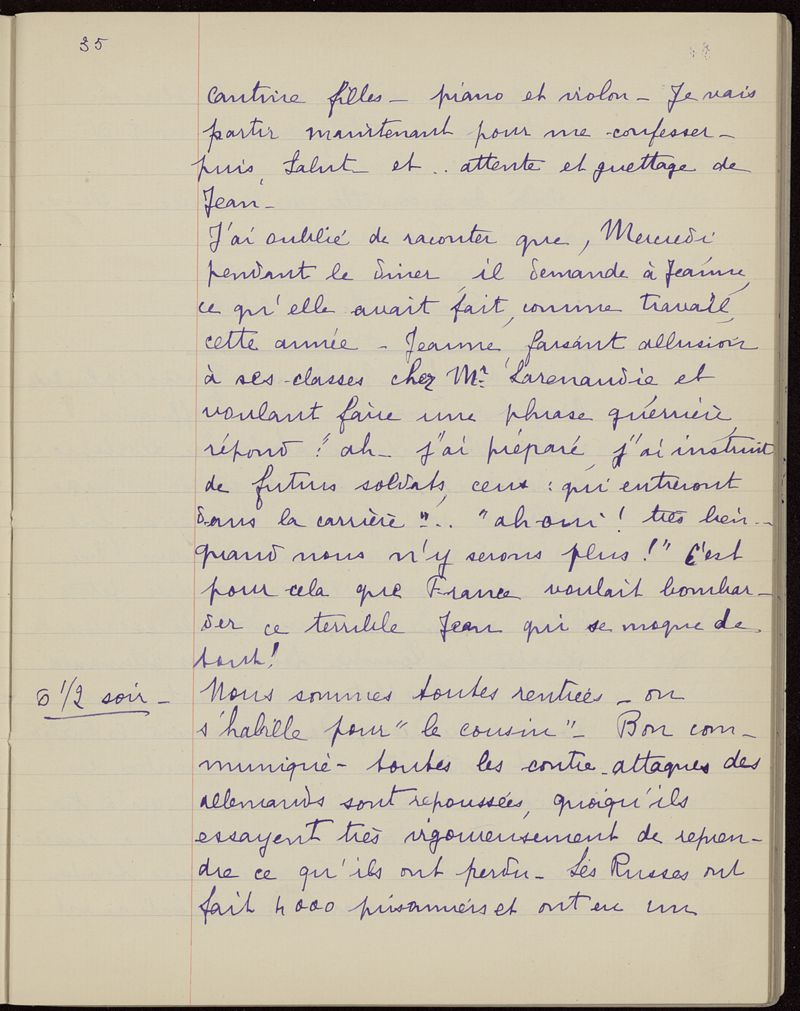 35
cantine filles – piano et violon – Je vais
partir maintenant pour me confesser –
puis, Salut – et .. attente et guettage de
Jean –
J'ai oublié de raconter que, Mercredi
pendant le diner, il demande à Jeanne,
ce qu'elle avait fait, comme travail,
cette année – Jeanne, faisant allusion
à ses classes chez Mr Larenaudie et
voulant faire une phrase guérrière,
répond : "ah – j'ai préparé, j'ai instruit
de futurs soldats, ceux : qui entreront
dans la carrière".. "ah oui ! très bien ..
quand nous n'y serons plus !" C'est
pour cela que France voulait bombar–
der ce terrible Jean qui se moque de
tout !
6 1/2 soir – Nous sommes toutes rentrées – on
s'habille pour "le cousin" – Bon com–
muniqué – toutes les contre-attaques des
allemands sont repoussées, quoiqu'ils
essayent très vigoureusement de repren–
dre ce qu'ils ont perdu – Les Russes ont
fait 4000 prisonniers et ont eu un